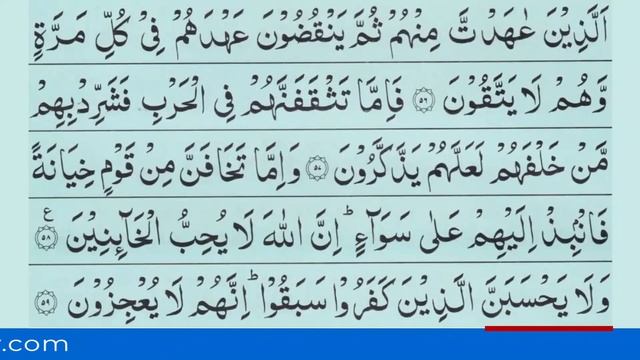 اَلَّذِيْنَ عٰهَدْتَّ مِنْهُمْ ثُمَّ يَنْقُضُوْنَ عَهْدَهُمْ فِيْ كُلِّ مَرَّةٍ
وَّهُمْ لَا يَتَّقُوْنَ ۝٥٦ فَاِمَّا تَثْقَفَنَّهُمْ فِي الْحَرْبِ فَشَرِّدْ بِهِمْ
مَّنْ خَلْفَهُمْ لَعَلَّهُمْ يَذَّكَّرُوْنَ ۝٥٧ وَاِمَّا تَخَافَنَّ مِنْ قَوْمٍ خِيَانَةً
فَانْۢبِذْ اِلَيْهِمْ عَلٰى سَوَآءٍ ؕ اِنَّ اللّٰهَ لَا يُحِبُّ الْخَآئِنِيْنَ ۝٥٨ ع
وَلَا يَحْسَبَنَّ الَّذِيْنَ كَفَرُوْا سَبَقُوْا ؕ اِنَّهُمْ لَا يُعْجِزُوْنَ ۝٥٩
.com